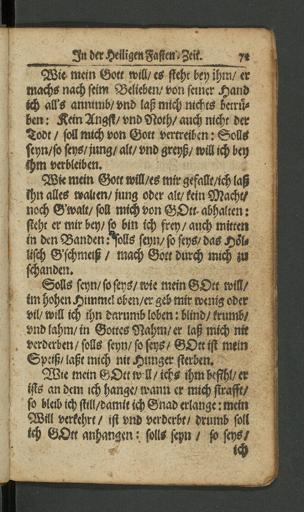 In der Heiligen Fasten-Zeit. 71
Wie mein Gott will/ es steht bey ihm/ er
machs nach seim Belieben/ von seiner Hand
ich all's annimb/ vnd laß mich nichts betrü-
ben: Kein Angst/ vnd Noth/ auch nicht der
Todt / soll mich von Gott vertreiben: Solls
seyn/so seys/ jung/ alt/ vnd greyß/ will ich bey
ihm verbleiben.
Wie mein Gott will/es mir gefallt/ich laß
ihn alles walten/ jung oder alt/ kein Macht/
noch G'walt/ soll mich von GOtt abhalten:
steht er mir bey/ so bin ich frey/ auch mitten
in den Banden: solls seyn/ so seys/ das Höl-
lisch G'schmeiß / mach Gott durch mich zu
schanden.
Solls seyn/ so seys/ wie mein GOtt will/
im hohen Himmel oben/er geb mir wenig oder
vil/ will ich ihn darumb loben: blind/ krumb/
vnd lahm/ in Gottes Nahm/ er laß mich nit
verderben/ solls seyn/ so seys/ GOtt ist mein
Speiß/ laßt mich nit Hunger sterben.
Wie mein GOtt will/ ichs ihm befihl/ er
ists an dem ich hange/ wann er mich strafft/
so bleib ich still/damit ich Gnad erlange: mein
Will verkehrt / ist vnd verderbt/ drumb soll
ich GOtt anhangen: solls seyn / so seys/
ich